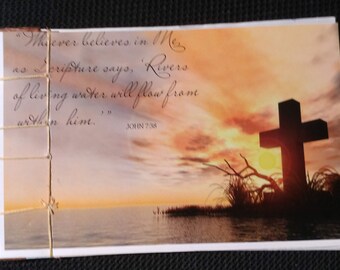 "Whoever believes in Me,
as Scripture says, 'Rivers
of living water will flow from
within him.'"
JOHN 7:38